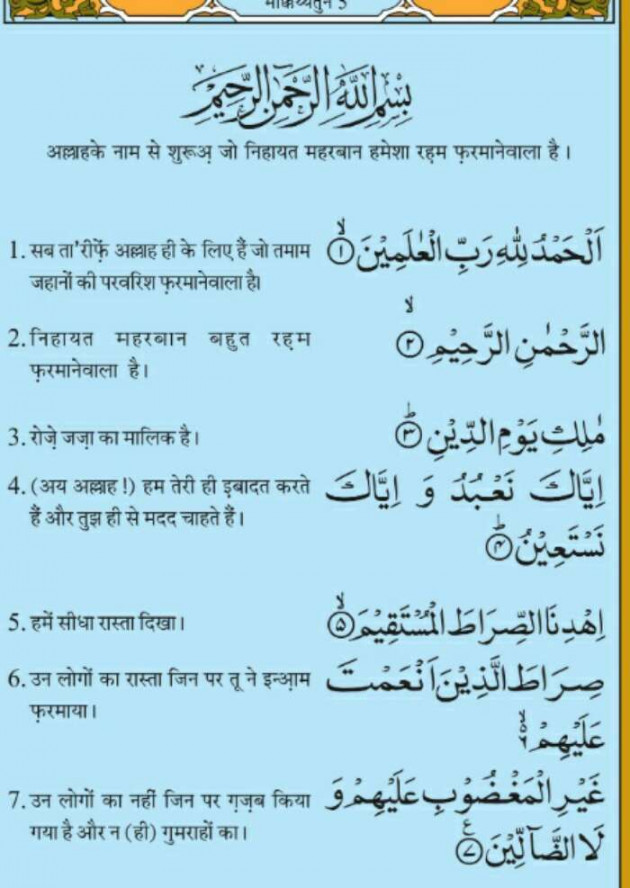 मक्किय्यतुन 5
بِسْمِ اللّٰهِ الرَّحْمٰنِ الرَّحِيْمِ
अल्लाहके नाम से शुरूअ़ जो निहायत महरबान हमेशा रहम फ़रमानेवाला है।
1. सब ता'रीफ़ें अल्लाह ही के लिए हैं जो तमाम
जहानों की परवरिश फ़रमानेवाला है।
اَلْحَمْدُ لِلّٰهِ رَبِّ الْعٰلَمِيْنَ ۙ﴿۱﴾
2. निहायत महरबान बहुत रहम
फ़रमानेवाला है।
الرَّحْمٰنِ الرَّحِيْمِ ۙ﴿۲﴾
3. रोज़े जज़ा का मालिक है।
مٰلِكِ يَوْمِ الدِّيْنِ ؕ﴿۳﴾
4. (अय अल्लाह!) हम तेरी ही इबादत करते
हैं और तुझ ही से मदद चाहते हैं।
اِيَّاكَ نَعْبُدُ وَ اِيَّاكَ
نَسْتَعِيْنُ ؕ﴿۴﴾
5. हमें सीधा रास्ता दिखा।
اِهْدِنَا الصِّرَاطَ الْمُسْتَقِيْمَ ۙ﴿۵﴾
6. उन लोगों का रास्ता जिन पर तू ने इन्आ़म
फ़रमाया।
صِرَاطَ الَّذِيْنَ اَنْعَمْتَ
عَلَيْهِمْ ۙ۬﴿۶﴾
7. उन लोगों का नहीं जिन पर ग़ज़ब किया
गया है और न (ही) गुमराहों का।
غَيْرِ الْمَغْضُوْبِ عَلَيْهِمْ وَ
لَا الضَّآلِّيْنَ ﴿۷﴾ع